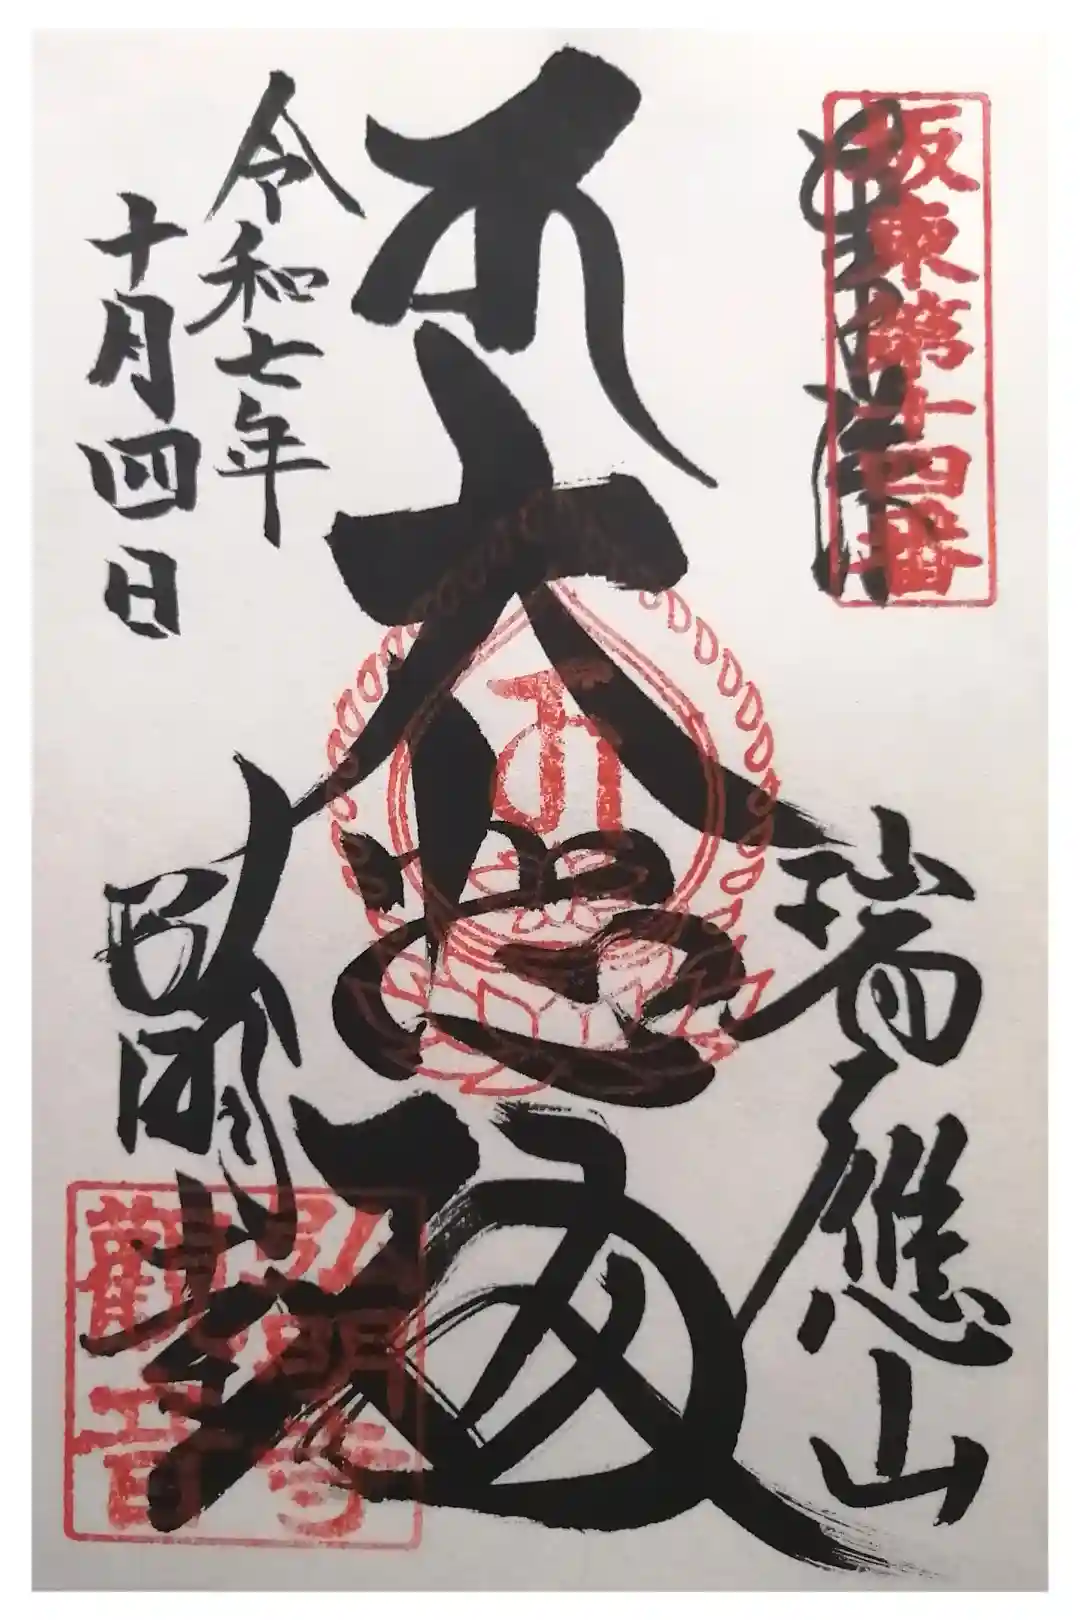 坂東第十四番
瑞應山
大悲殿
令和七年
十月四日
弘明寺
弘明寺
觀音